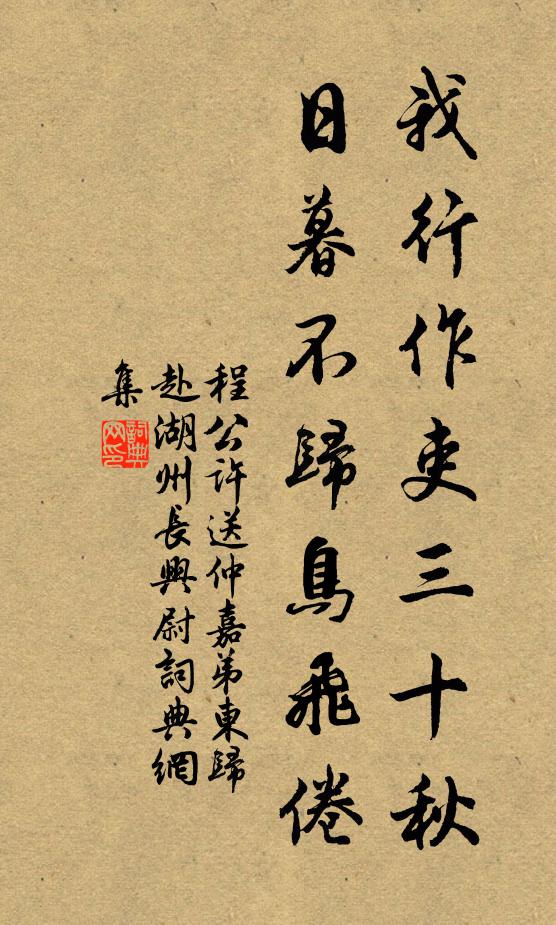 我行作吏三十秋
日暮不歸鳥飛倦
程公許送仲嘉弟東歸
赴湖州長興尉詞典網
集
詞典
网印